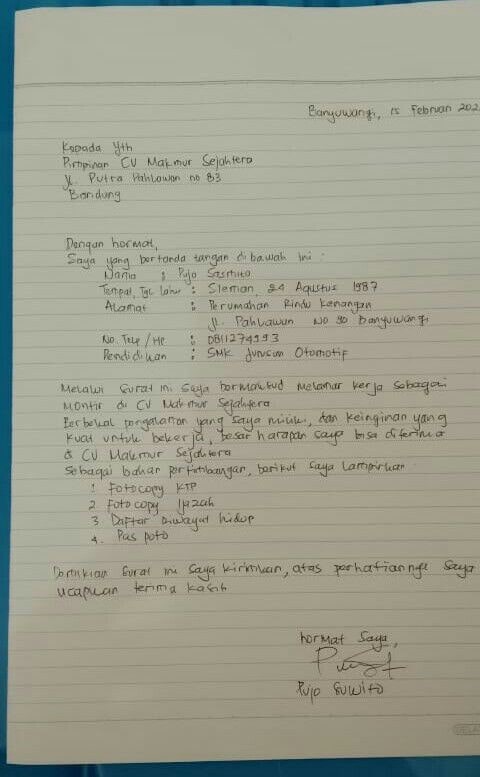 Banyuwangi, 15 Februari 202
Kepada Yth
Pimpinan CV Makmur Sejahtera
Jl. Putra Pahlawan no 83
Bandung
Dengan hormat,
Saya yang bertanda tangan dibawah ini :
Nama : Pujo Sasmito
Tempat, Tgl Lahir : Sleman, 24 Agustus 1987
Alamat : Perumahan Rindu Kenangan
Jl. Pahlawan No 90 Banyuwangi
No. Telp / Hp : 0811274993
Pendidikan : SMK Jurusan Otomotif
Melalui surat ini saya bermaksud melamar kerja sebagai
montir di CV Makmur Sejahtera
Berbekal pengalaman yang saya miliki, dan keinginan yang
kuat untuk bekerja, besar harapan saya bisa diterima
di CV Makmur Sejahtera
Sebagai bahan pertimbangan, berikut saya lampirkan
1 Fotocopy KTP
2 Fotocopy Ijazah
3 Daftar Riwayat hidup
4. Pas poto
Demikian surat ini saya kirimkan, atas perhatiannya saya
ucapkan terima kasih
hormat saya,
Pujo Suwito